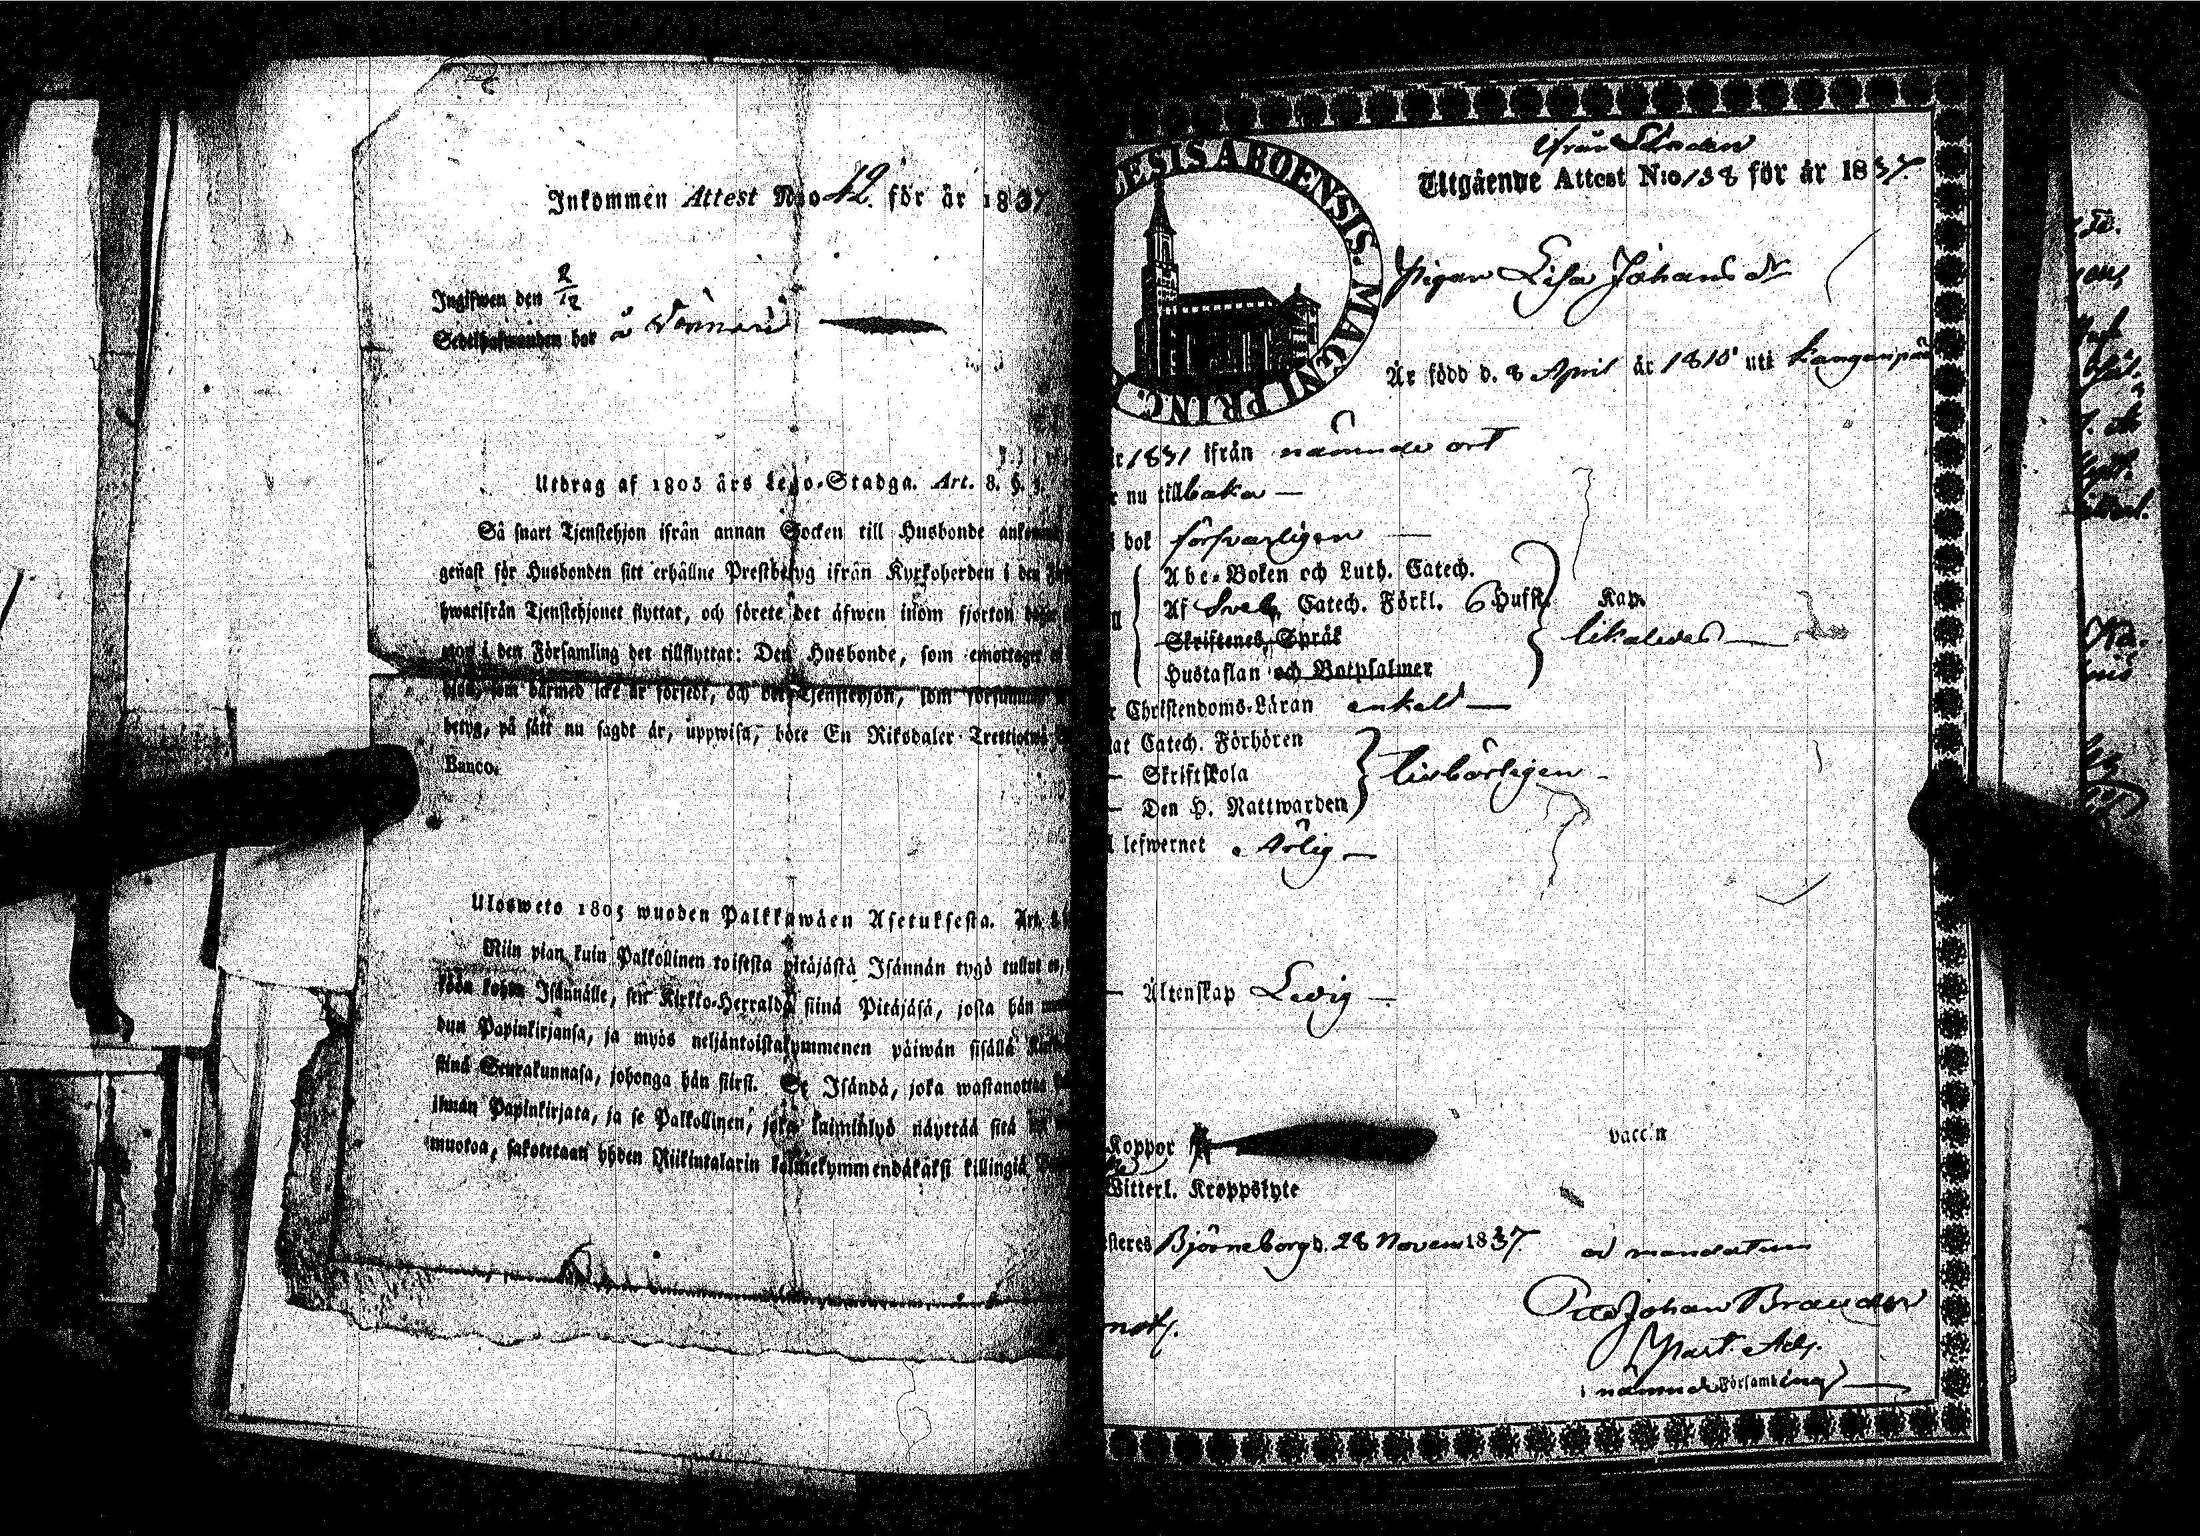 Inkommen Attest N:o 42. för år 1837
Ingifwen den 2/12
Sedelhafwanden bor å
Utdrag af 1805 års Lego-Stadga. Art. 8. §.
Så snart Tjenstehjon ifrån annan Socken till Husbonde
genast för Husbonden sitt erhållne Prestbetyg ifrån Kyrkoherden i den
hwarifrån Tjenstehjonet flyttat, och förete det äfwen inom fjorton
i den Församling det tillflyttat: Den Husbonde, som emottager
som därmed icke är försedt, och det Tjenstehjon, som försummar
betyg, på sätt nu sagdt är, uppwisa, böte En Riksdaler Trettiotwå
Banco.
Ulosweto 1805 wuoden Palkkawäen Asetuksesta. Art. 8
Niin pian kuin Palkollinen toisesta pitäjästä Isännän tygö tullut
kohta Isännälle, sen Kirkko-Herralda siinä Pitäjäsä, josta hän
dun Papinkirjansa, ja myös neljäntoistakymmenen päiwän sisällä
siinä Seurakunnasa, johonga hän siirsi. Se Isändä, joka wastanottaa
ilman Papinkirjata, ja se Palkollinen, joka laiminlyö näyttää sitä
muotoa, sakotetaan yhden Riikintalarin kolmekymmendäkaksi killingiä
ESIS ABOENSIS. MAGNI PRINC.
ifrån Staden
Utgående Attest N:o 138 för år 1837.
Pigan Lisa Johansdr
Är född d. 8 April år 1815 uti
1831 ifrån nämnde ort
nu tillbaka —
bok försvarligen —
Abc-Boken och Luth. Catech.
Af Sveb. Catech. Förkl. 6 Hufst. Kap.
Skriftenes Språk
likaledes —
Hustaflan och Botpsalmer
Christendoms-Läran enkelt —
Catech. Förhören
— Skriftskola
tilbörligen —
— Den H. Nattwarden
lefwernet ärlig —
— Äktenskap Ledig —
Koppor
vacc:n
Witterl. Kroppslyte
Björneborg d. 28 Novem 1837.
ad mandatum
Otto Johan Brander
Past. Adj.
i nämnde Församling —